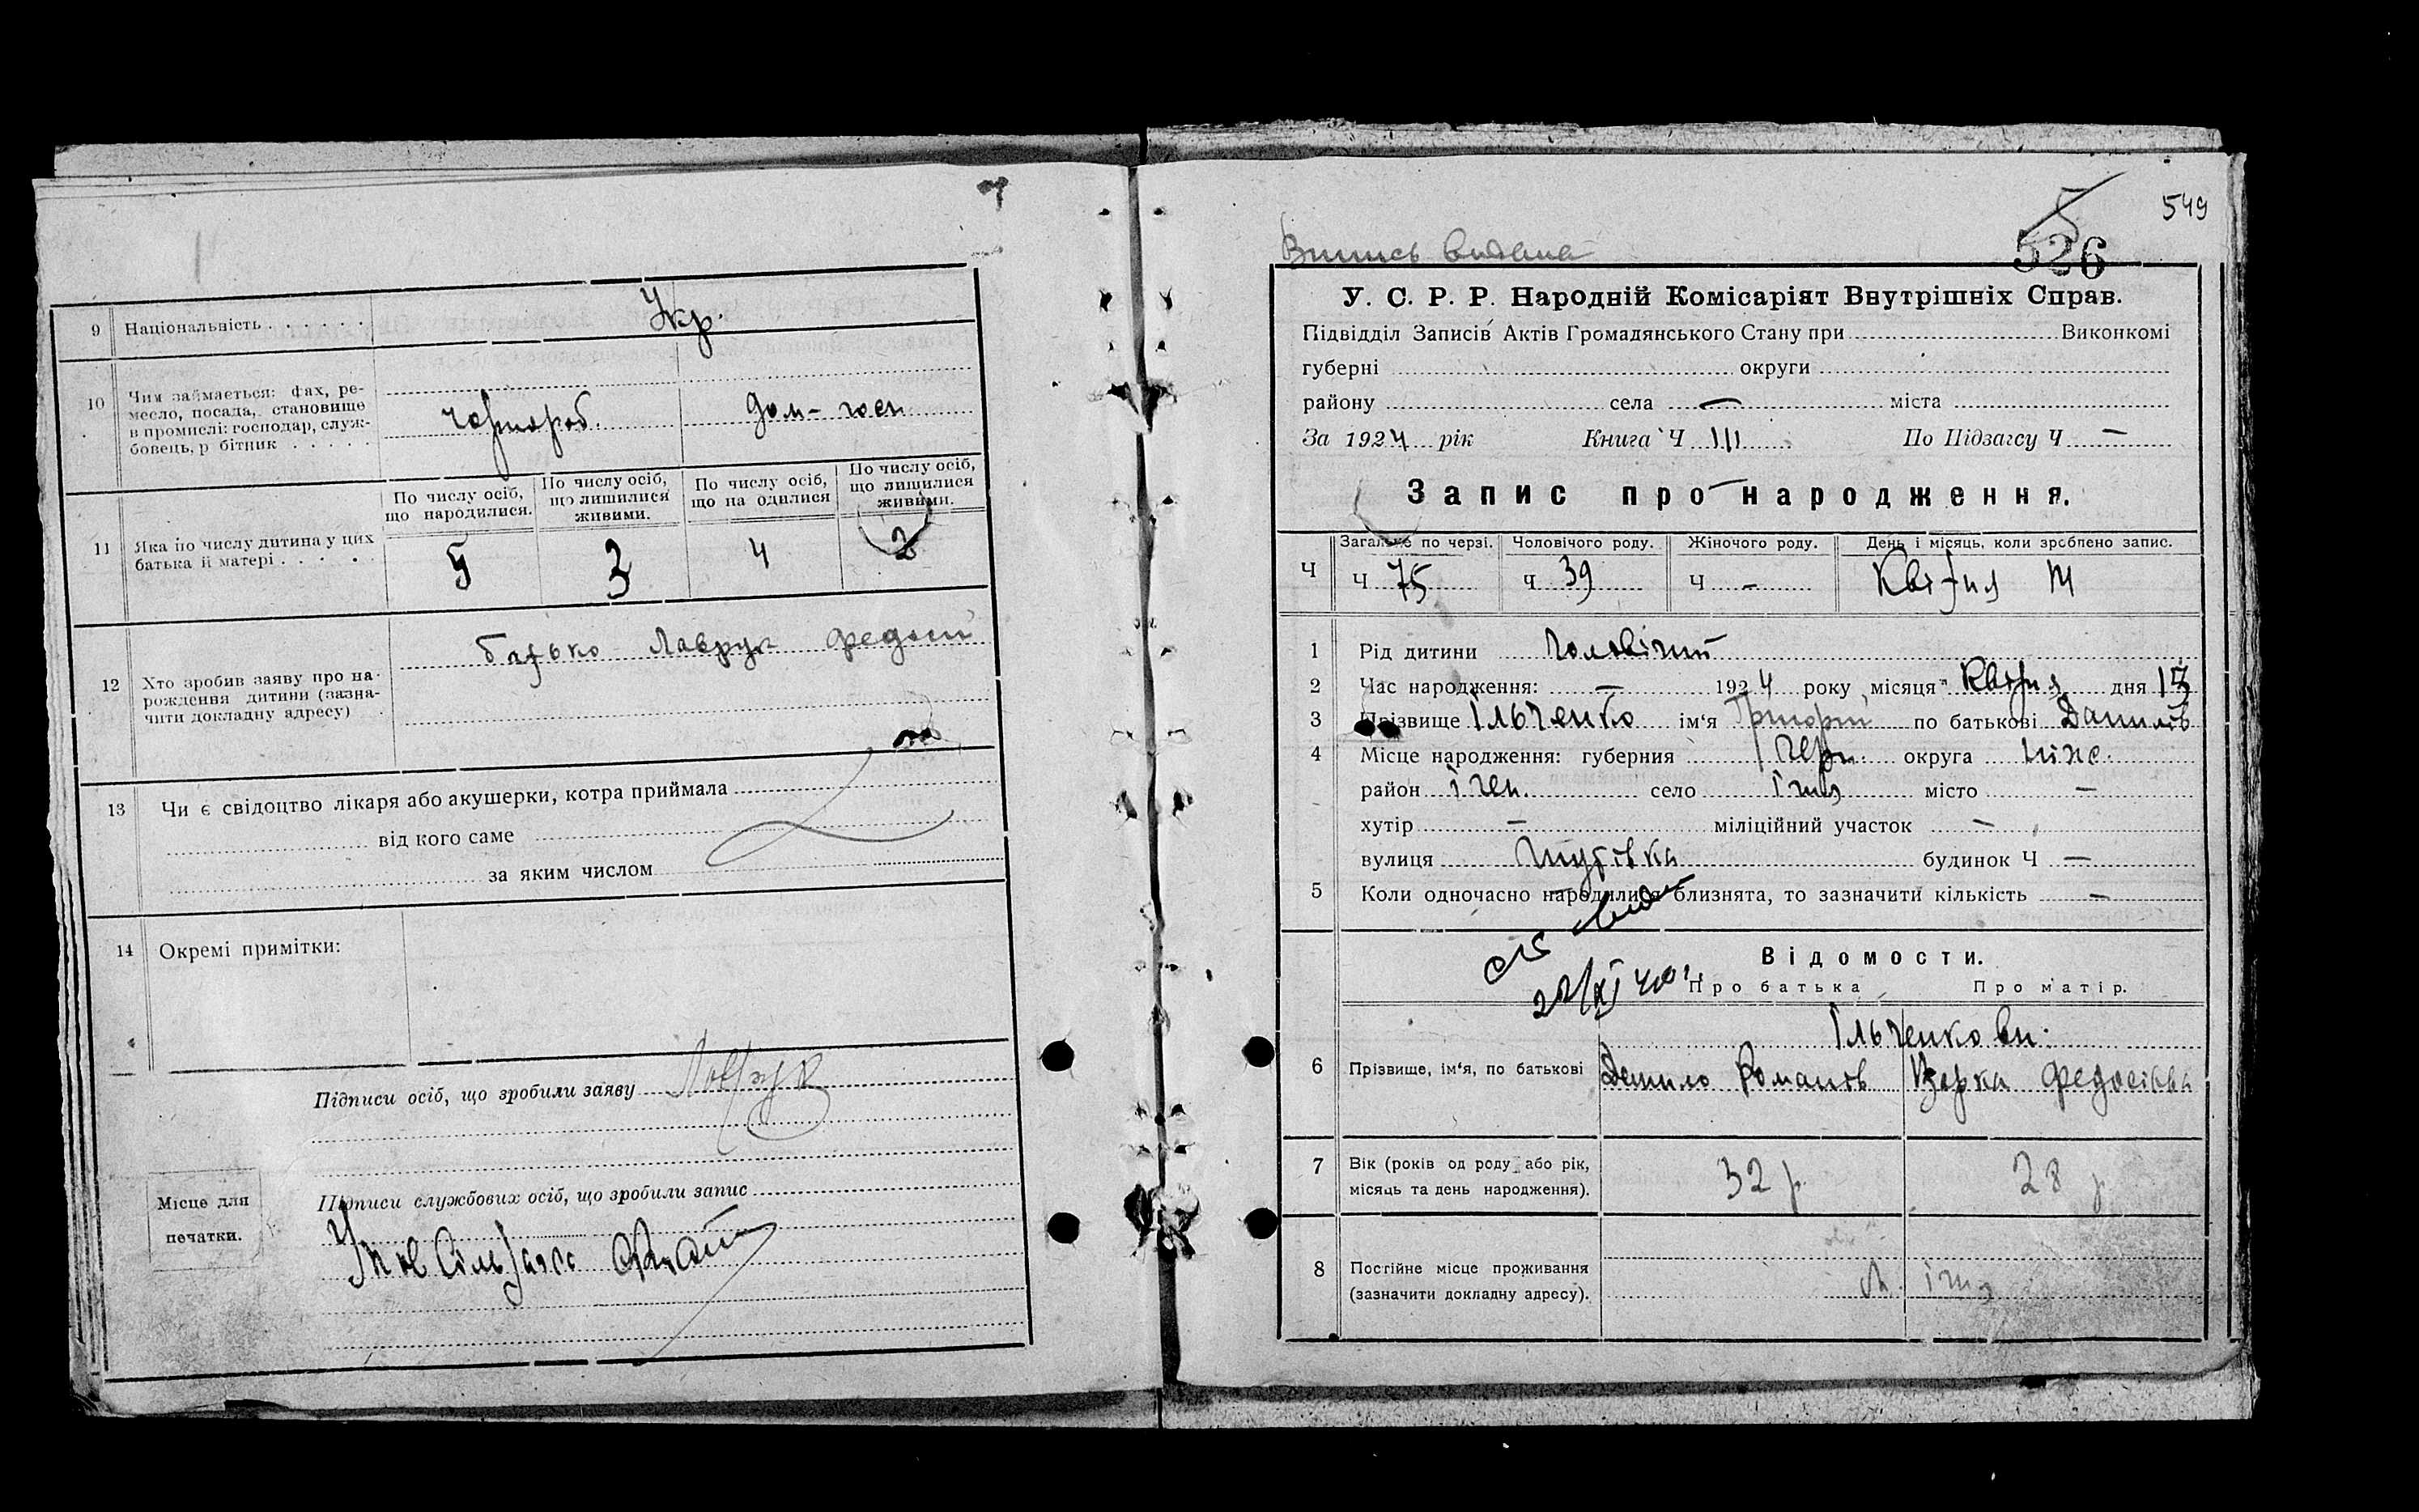 9 Національність . . . . . . Укр.
10 Чим займається: фах, ре-
месло, посада, становище
в промислі: господар, служ-
бовець, р бітник . . . . .
чорнороб. дом-госп.
11 Яка по числу дитина у цих
батька й матері . . . . .
По числу осіб, що народилися.
По числу осіб, що лишилися живими.
По числу осіб, що на одилися
По числу осіб, що лишилися живими.
5 3 4 2
12 Хто зробив заяву про на-
рождення дитини (зазна-
чити докладну адресу)
батько Лаврук Федосій
13 Чи є свідоцтво лікаря або акушерки, котра приймала
від кого саме
за яким числом
14 Окремі примітки:
Підписи осіб, що зробили заяву Лаврук
Підписи службових осіб, що зробили запис
Місце для
печатки.
549
526
Випись видана
У. С. Р. Р. Народній Комісаріят Внутрішніх Справ.
Підвідділ Записів Актів Громадянського Стану при Виконкомі
губерні округи
району села — міста
За 1924 рік Книга Ч III По Підзагсу Ч —
Запис про народження.
Загальне по черзі. Чоловічого роду. Жіночого роду. День і місяць, коли зроблено запис.
Ч Ч 75 Ч 39 Ч — Квітня 14
1 Рід дитини Чоловічий
2 Час народження: — 1924 року місяця Квітня дня 13
3 Прізвище Ільченко ім‘я Григорій по батькові Данилів
4 Місце народження: губерния Черн. округа Ніж.
район Ічен. село Ічня місто —
хутір — міліційний участок —
вулиця будинок Ч —
5 Коли одночасно народилися близнята, то зазначити кількість —
22/XI 40 г.
Відомости.
Про батька Про матір.
Ільченкови:
6 Прізвище, ім‘я, по батькові Данило Романів Федосіївна
7 Вік (років од роду або рік,
місяць та день народження).
32 р 28 р
8 Постійне місце проживання
(зазначити докладну адресу).
м. Ічня